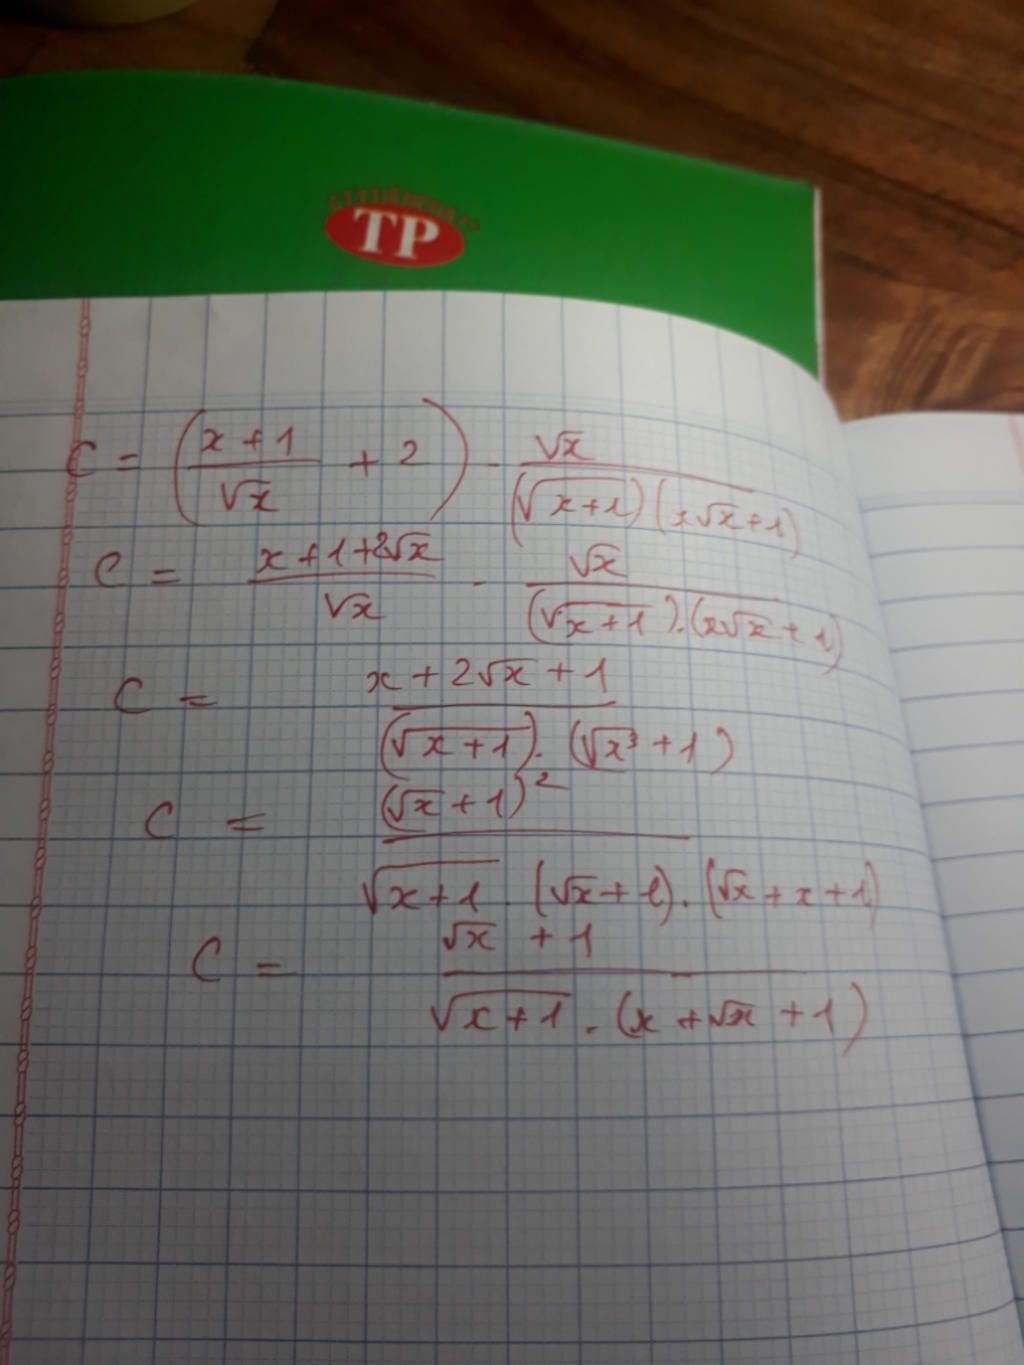 TP
C = (x+1/√x + 2) - √x/(√x+1)(x√x+1)
C = x+1+2√x/√x - √x/(√x+1).(x√x+1)
C = x+2√x+1/(√x+1).(√x³+1)
C = (√x+1)²/√x+1.(√x+1).(√x+x+1)
C = √x+1/√x+1.(x+√x+1)